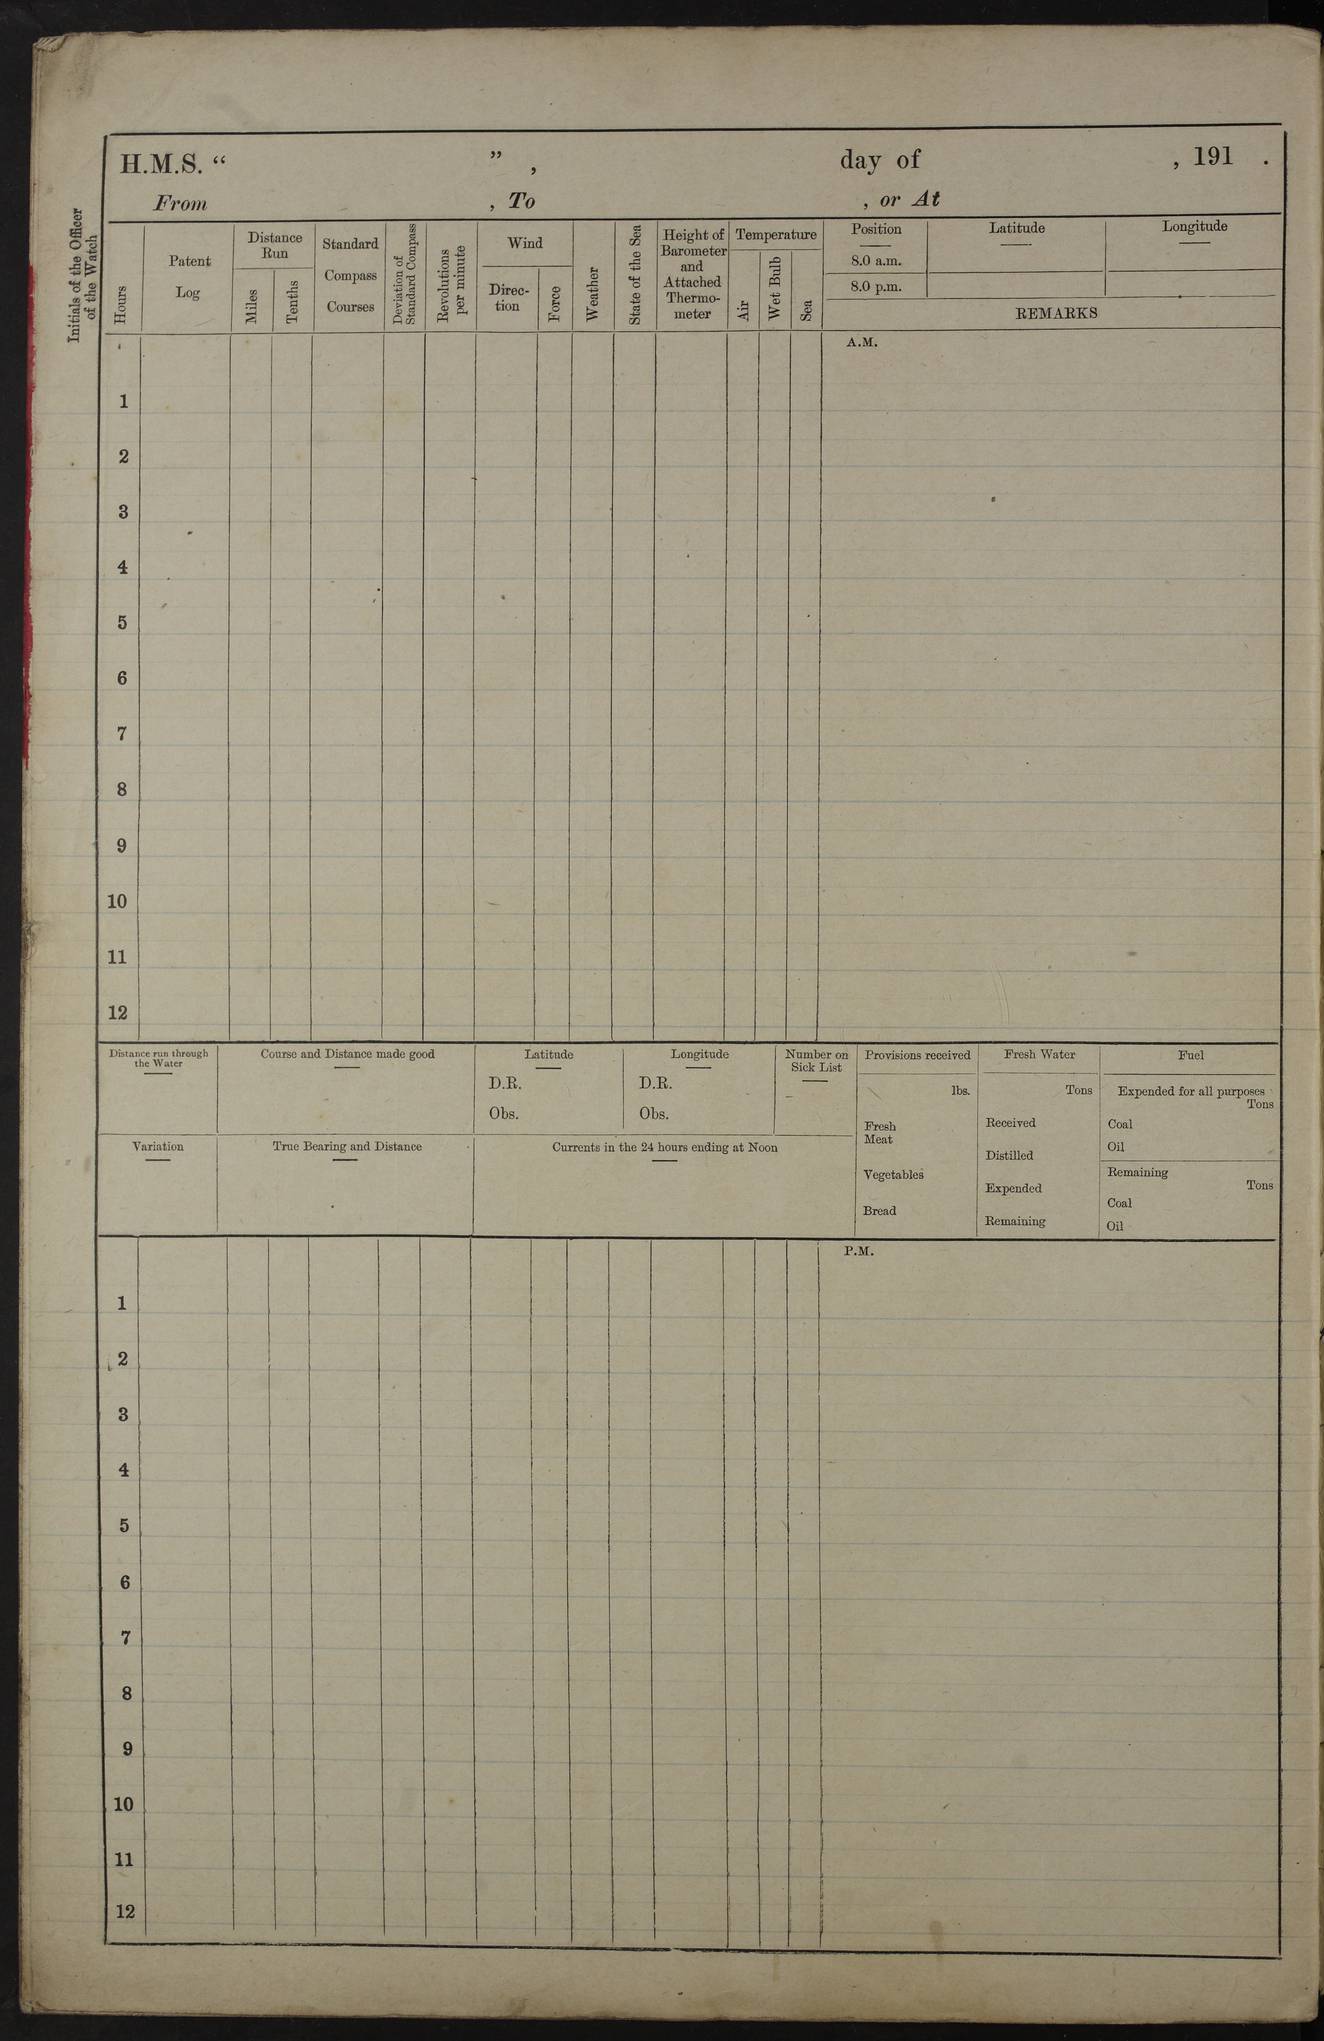 H.M.S. “ ” , day of , 191 .
From , To , or At
Initials of the Officer
of the Watch
Hours
Patent
Log
Distance
Run
Miles
Tenths
Standard
Compass
Courses
Deviation of
Standard Compass
Revolutions
per minute
Wind
Direc-
tion
Force
Weather
State of the Sea
Height of
Barometer
and
Attached
Thermo-
meter
Temperature
Air
Wet Bulb
Sea
Position
8.0 a.m.
8.0 p.m.
Latitude
Longitude
REMARKS
A.M.
1
2
3
4
5
6
7
8
9
10
11
12
Distance run through
the Water
Course and Distance made good
Latitude
D.R.
Obs.
Longitude
D.R.
Obs.
Number on
Sick List
Provisions received
lbs.
Fresh
Meat
Vegetables
Bread
Fresh Water
Tons
Received
Distilled
Expended
Remaining
Fuel
Expended for all purposes
Tons
Coal
Oil
Remaining
Tons
Coal
Oil
Variation
True Bearing and Distance
Currents in the 24 hours ending at Noon
P.M.
1
2
3
4
5
6
7
8
9
10
11
12